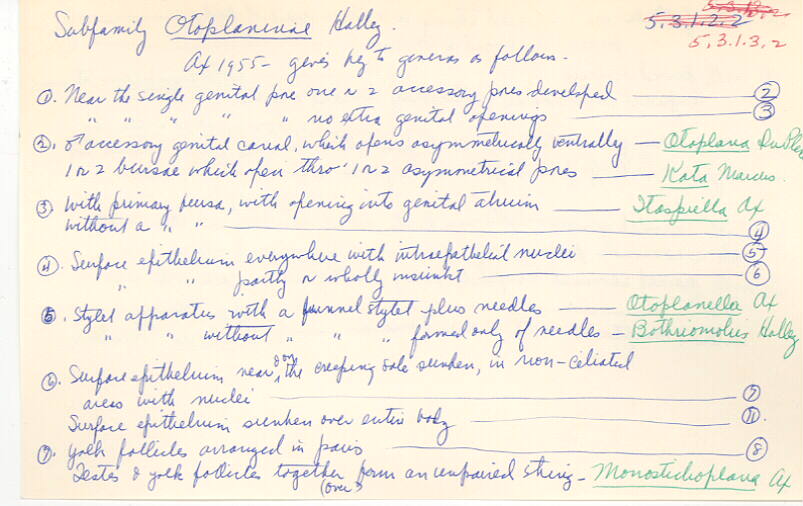 5.3.1.2.2
Subfamily Otoplaninae Hallez.
5.3.1.3.2
Ax 1955 - gives key to genera as follows.
①. Near the single genital pore one or 2 accessory pores developed ——— ②
" " " " " no extra genital openings ——— ③
②. ♂ accessory genital canal, which opens asymmetrically ventrally — Otoplana DuPles
1 or 2 bursae which open thro' 1 or 2 asymmetrical pores — Kata Marcus.
③. With primary bursa, with opening into genital atrium — Itaspiella Ax
without a " " ——— ④
④. Surface epithelium everywhere with intraepithelial nuclei ——— ⑤
" " partly or wholly insunk ——— ⑥
⑤. Stylet apparatus with a funnel stylet plus needles — Otoplanella Ax
" " without " " " formed only of needles — Bothriomolus Hallez
⑥. Surface epithelium near & on the creeping sole sunken, in non-ciliated
areas with nuclei ——— ⑦
Surface epithelium sunken over entire body ——— ⑪.
⑦. Yolk follicles arranged in pairs ——— ⑧
Testes & yolk follicles together form an unpaired string — Monostichoplana Ax
(over)